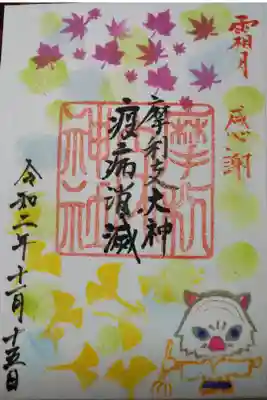 霜月
感謝
摩利支大神
疫病消滅
令和二年十一月十五日